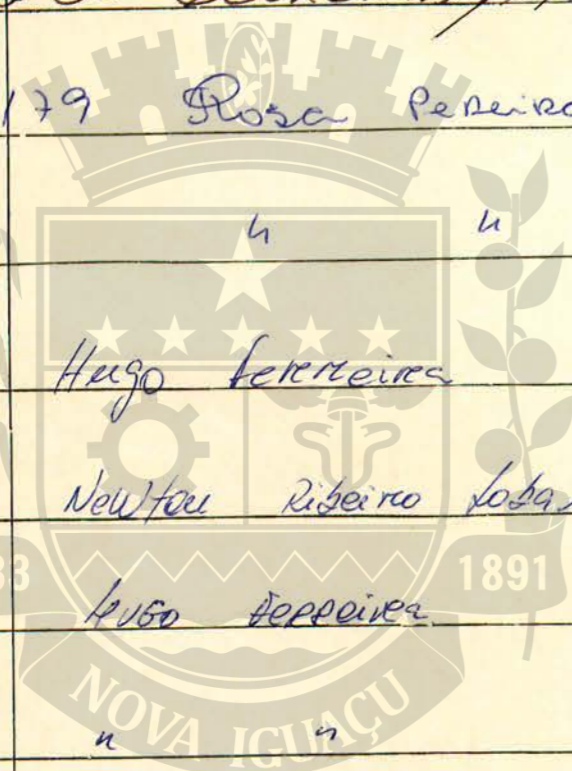 179 Rosa Pereira
" "
Hugo Ferreira
Newton Ribeiro
33 1891
Hugo Ferreira
NOVA IGUAÇU
" "